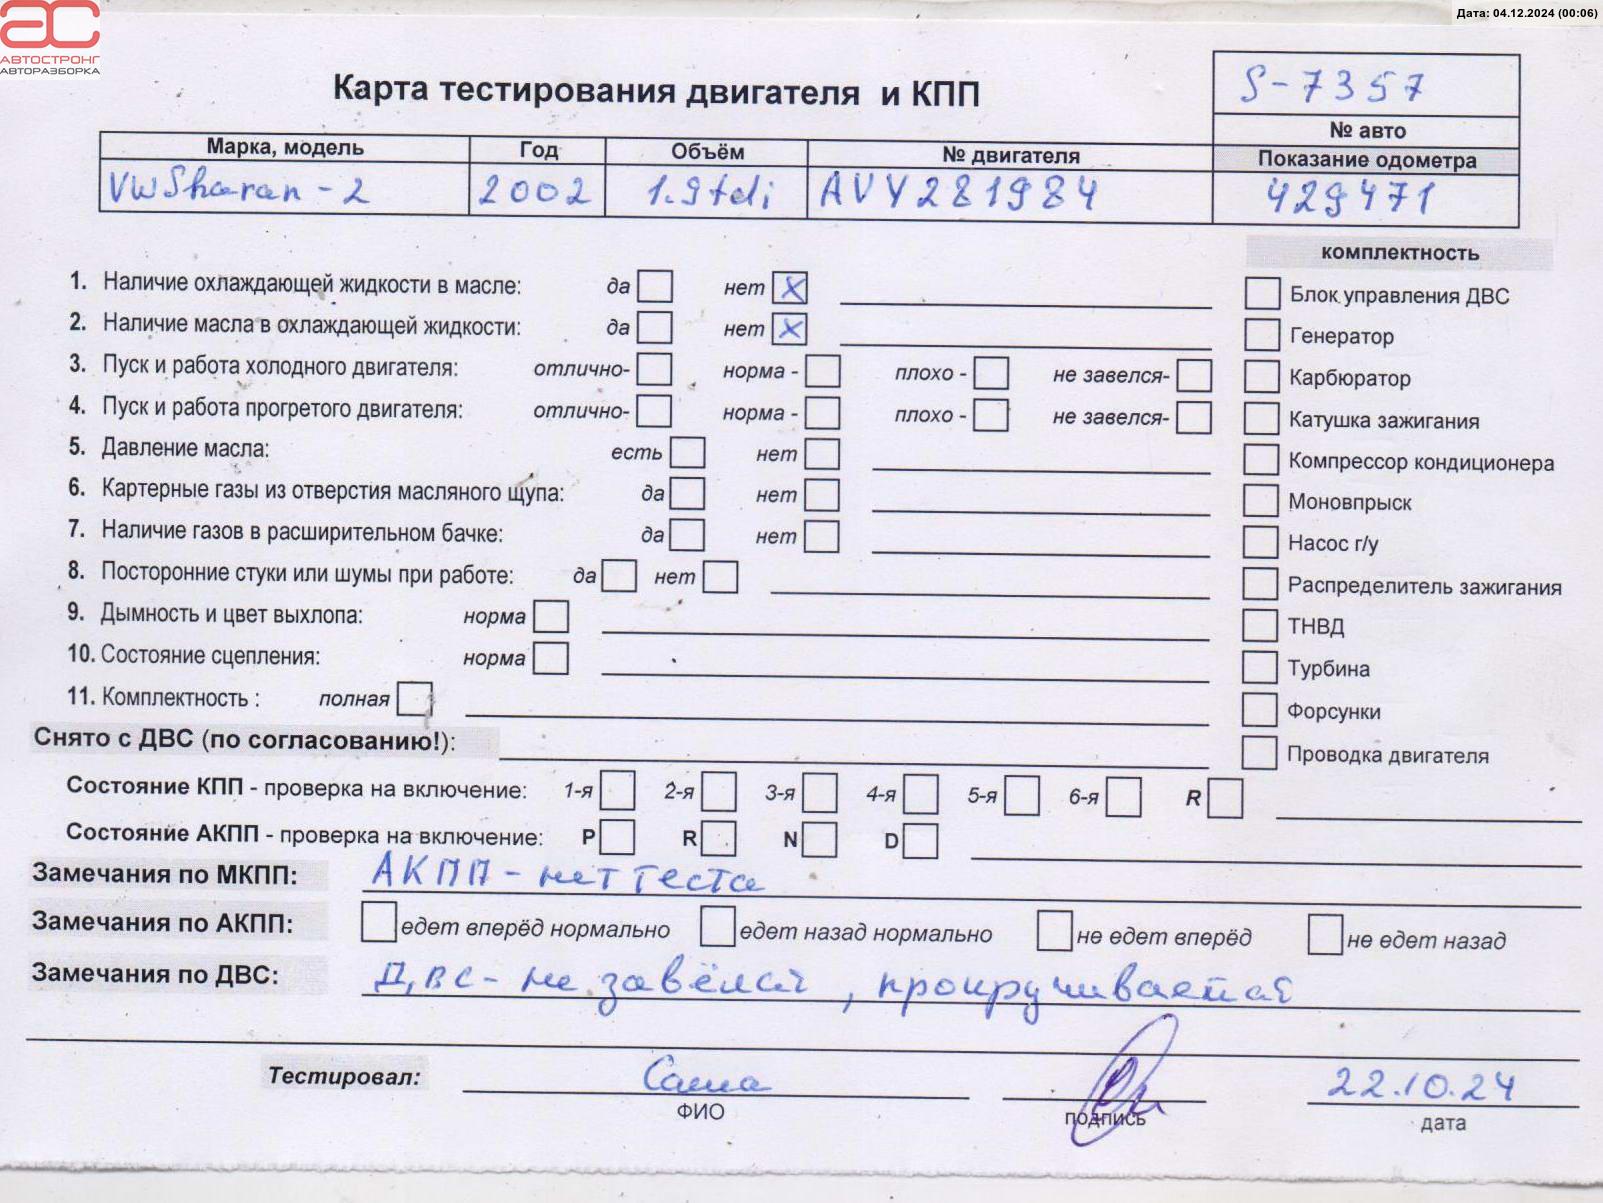 Дата: 04.12.2024 (00:06)
АВТОСТРОНГ
АВТОРАЗБОРКА
Карта тестирования двигателя и КПП
S-7357
№ авто
Марка, модель Год Объём № двигателя Показание одометра
VW Sharan-2 2002 1.9tdi AVY281984 429471
комплектность
1. Наличие охлаждающей жидкости в масле: да нет X
Блок управления ДВС
2. Наличие масла в охлаждающей жидкости: да нет X
Генератор
3. Пуск и работа холодного двигателя: отлично- норма - плохо - не завелся-
Карбюратор
4. Пуск и работа прогретого двигателя: отлично- норма - плохо - не завелся-
Катушка зажигания
5. Давление масла: есть нет
Компрессор кондиционера
6. Картерные газы из отверстия масляного щупа: да нет
Моновпрыск
7. Наличие газов в расширительном бачке: да нет
Насос г/у
8. Посторонние стуки или шумы при работе: да нет
Распределитель зажигания
9. Дымность и цвет выхлопа: норма
ТНВД
10. Состояние сцепления: норма
Турбина
11. Комплектность : полная
Форсунки
Снято с ДВС (по согласованию!):
Проводка двигателя
Состояние КПП - проверка на включение: 1-я 2-я 3-я 4-я 5-я 6-я R
Состояние АКПП - проверка на включение: P R N D
Замечания по МКПП: АКПП - нет теста
Замечания по АКПП: едет вперёд нормально едет назад нормально не едет вперёд не едет назад
Замечания по ДВС: Двс - не завёлся, прокручивается
Тестировал: Саша 22.10.24
ФИО подпись дата